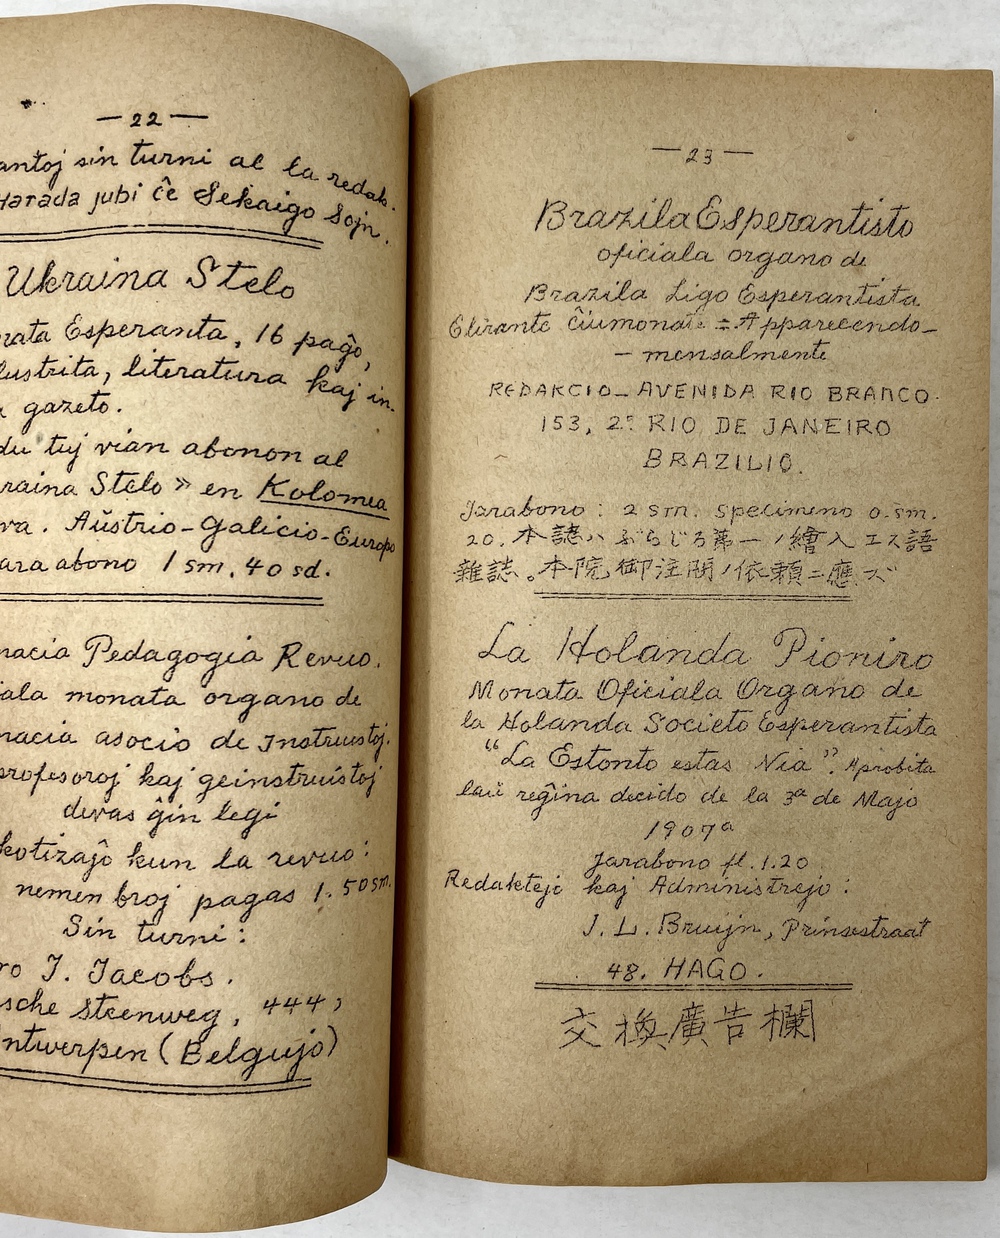 —22—
antoj sin turni al la redak.
Harada jubi ĉe Sekaigo Sojn.
Ukraina Stelo
nata Esperanta, 16 paĝo,
lustrita, literatura kaj in.
a gazeto.
du tuj vian abonon al
raina Stelo» en Kolomea
va. Aŭstrio-Galicio-Europo
ara abono 1 sm. 40 sd.
nacia Pedagogia Revuo.
iala monata organo de
nacia asocio de Instruistoj.
profesoroj kaj geinstruistoj
devas ĝin legi
kotizaĵo kun la revuo:
nemembroj pagas 1.50 sm.
Sin turni:
ro J. Jacobs.
sche steenweg, 444,
ntwerpen (Belgujo)
—23—
Brazila Esperantisto
oficiala organo de
Brazila Ligo Esperantista
Elirante ĉiumonate = Apparecendo-
- mensalmente
REDAKCIO_ AVENIDA RIO BRANCO.
153, 2º RIO DE JANEIRO
BRAZILIO.
Jarabono: 2 sm. specimeno 0.sm.
20. 本誌ハぶらじる第一ノ繪入エス語
雜誌。本院御注閱ノ依頼ニ應ズ
La Holanda Pioniro
Monata Oficiala Organo de
la Holanda Societo Esperantista
“La Estonto estas Nia”. Aprobita
laŭ reĝina decido de la 3ª de Majo
1907ª
Jarabono fl. 1.20
Redaktejo kaj Administrejo:
J. L. Bruijn, Prinsestraat
48. HAGO.
交換廣告欄